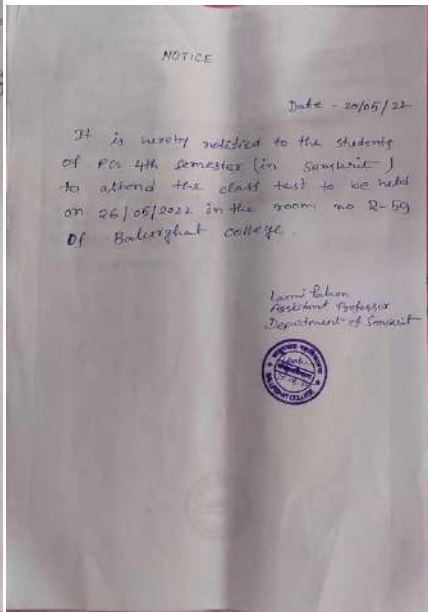 NOTICE
Date - 20/05/22
It is hereby notified to the students
of PG 4th semester (in Sanskrit)
to attend the class test to be held
on 26/05/2022 in the room no R-59
of Balurghat College.
Assistant Professor
Department of Sanskrit
BALURGHAT COLLEGE